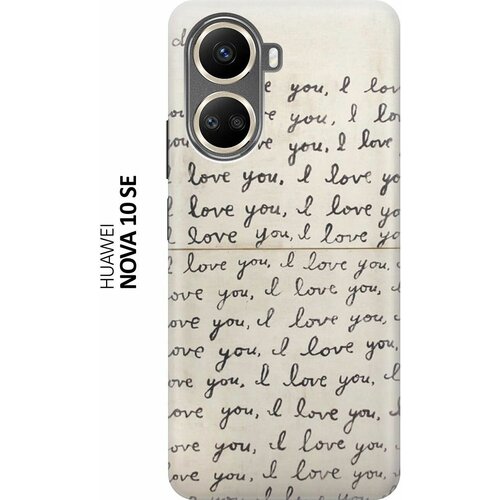 HUAWEI
NOVA 10 SE
you, I lov
you, I lo
you, I love
I love you, I love yo
I love you, I love yo
I love you, I love ya
I love you, I love you,
ove you, I love you,
ove you, I love you,
ove you, I love you,
ove you, I love you,
ove you, I love you,
ove you, I love you,
ove you, I love you,
you, I love you